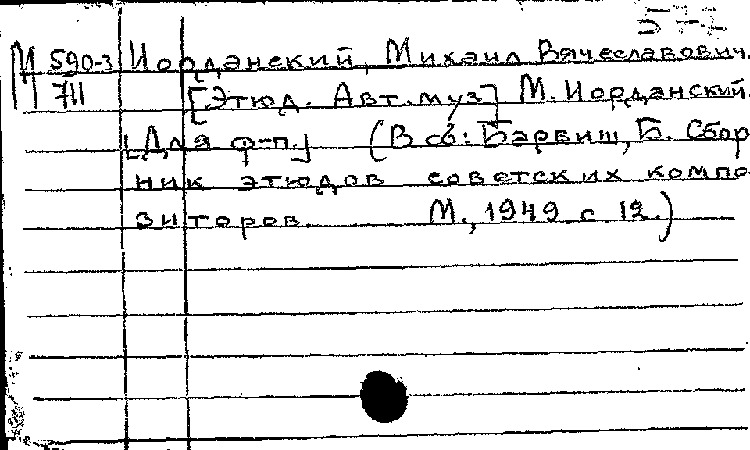 М 590-3 Иорданский, Михаил Вячеславович.
711 [Этюд. Авт. муз] М. Иорданский.
[Для ф-п.] (В сб: Барбиш, Б. Сбор
ник этюдов советских компо
зиторов. М., 1949 с 12.)